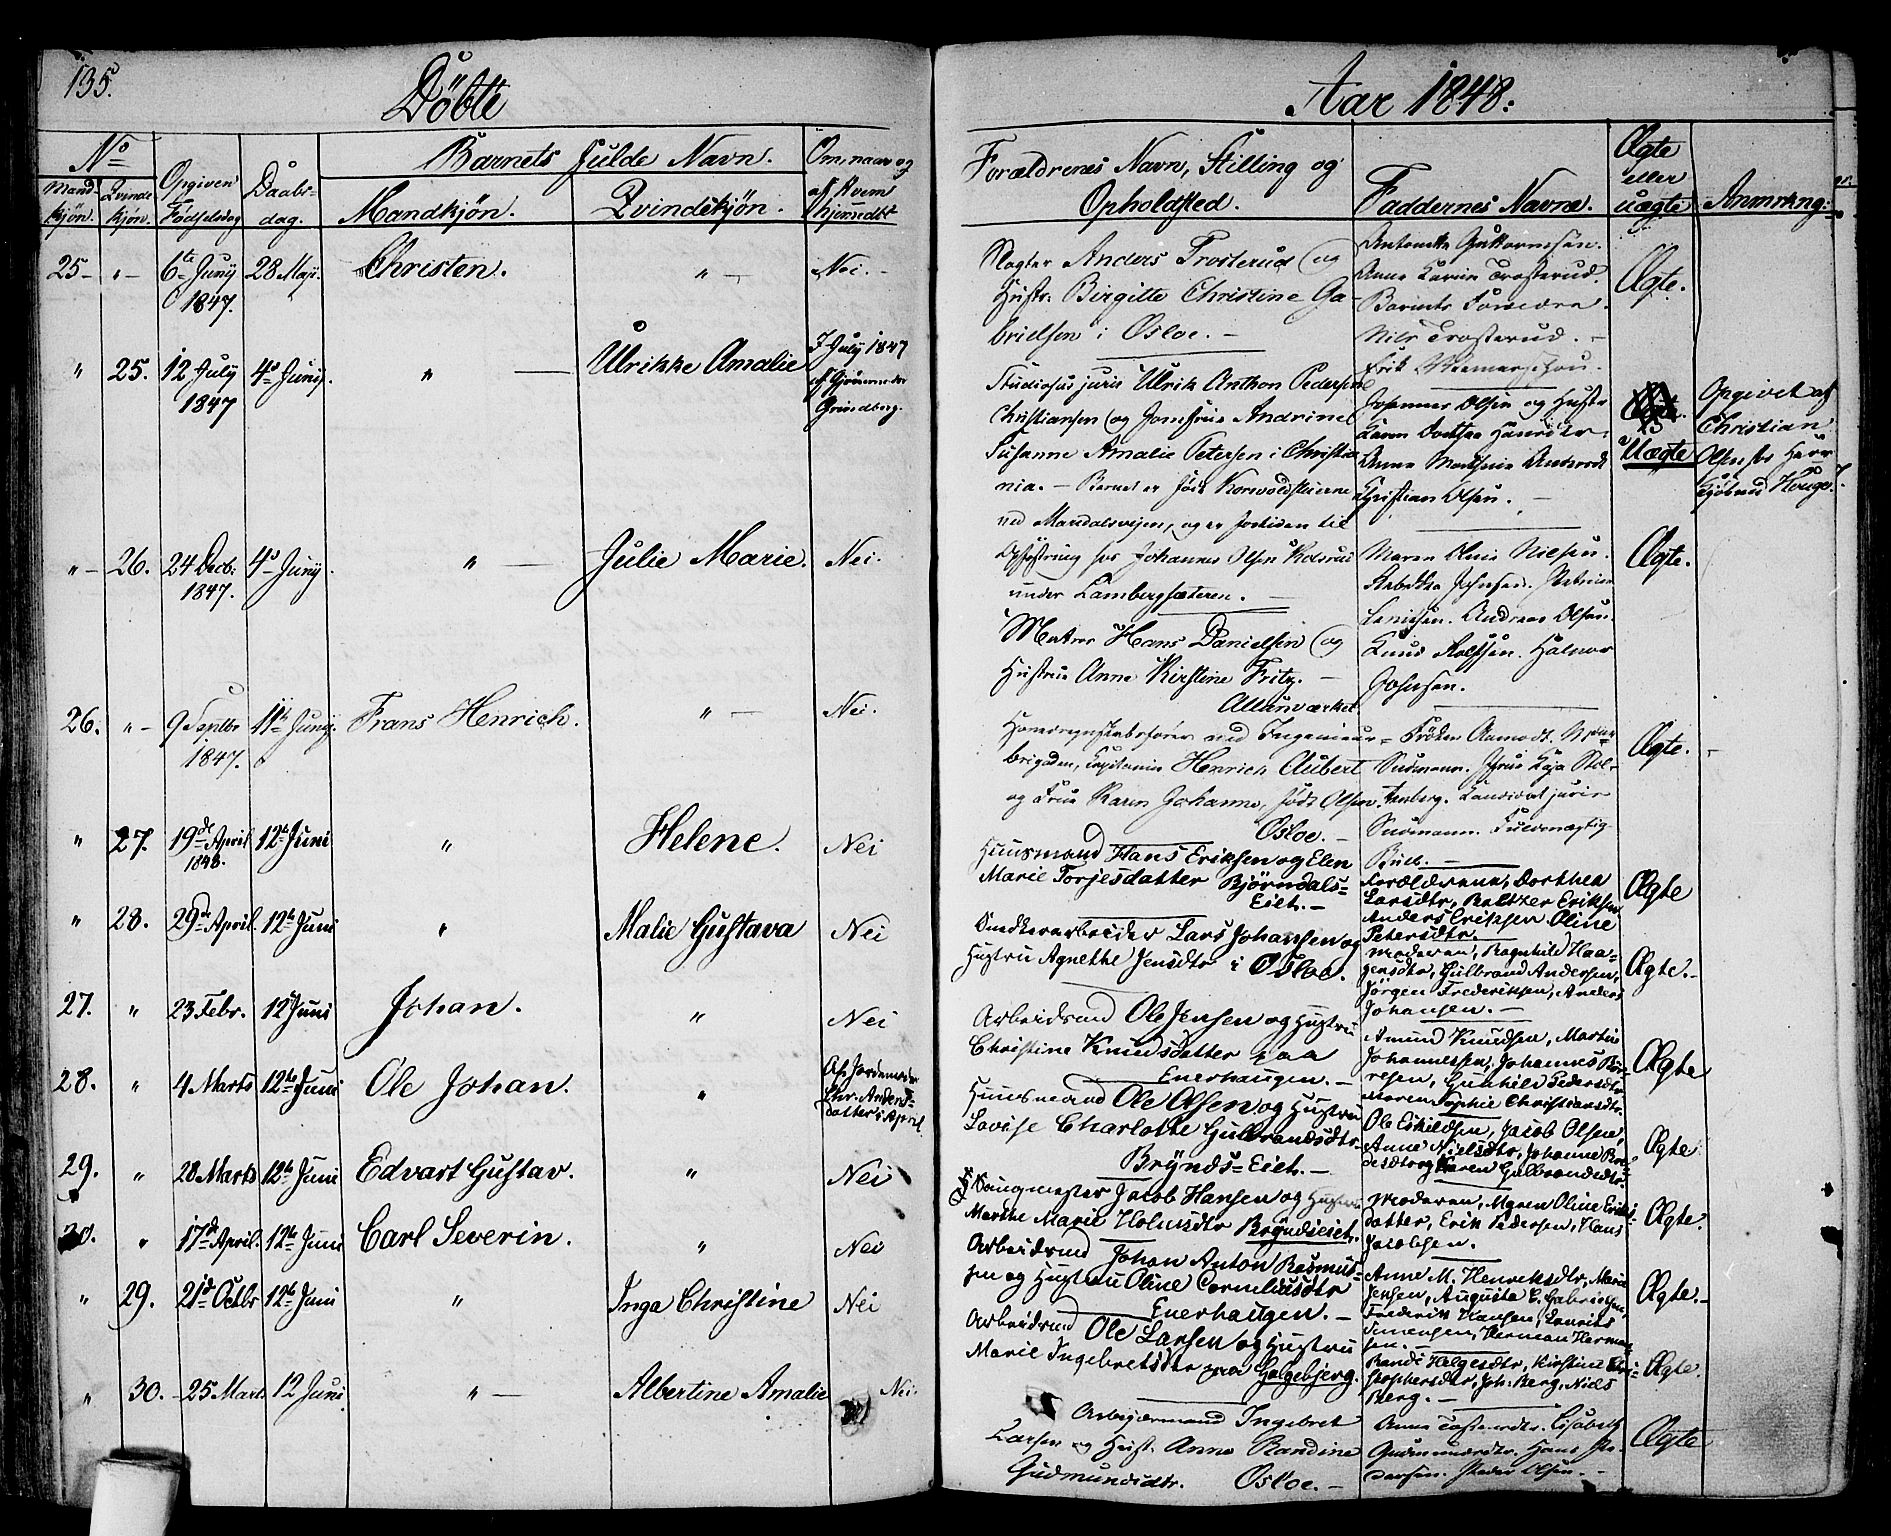 135.
Döbte
Aar 1848.
No
Mandkjön.
Qvindekjön.
Opgiven Födselsdag
Daabsdag.
Barnets fulde Navn.
Mandkjön.
Qvindekjön.
Om, naar og af Hvem hjemmedöbt
Forældrenes Navn, Stilling og
Opholdsted.
Faddernes Navne.
Ægte eller uægte
Anmærkng:
25 — " — 6te Juny 1847. 28 Maji. Christen. " — Nei. —
Slagter Anders Trosterud og
Hustr. Birgitte Christine Ga-
brielsen i Osloe. —
Anne Karine Trosterud.
Nils Trosterud. —
Ægte.
" 25. 12 July 1847 4de Juny. " — Ulrikke Amalie
7 July 1847
af Gjordemoder
Grindberg.
Studiosus juris Ulrik Anthon Pedersen
Christiansen og Jomfrue Andrine
Susanne Amalie Petersen i Christia
nia. — Barnet er födt
ved Mandalsvejen, og er for tiden til
Opfostring hos Johannes Olsen
under Lambergsæteren. —
Johannes Olsen og Hustr
Christian Olsen. —
Uægte
Opgivet af
Christian
Olsen
" — 26. 24 Decb: 1847. 4de Juny. " — Julie Marie. Nei. —
Matros Hans Danielsen og
Hustrue Anne Kirstine Fritz. —
Alunværket
Maren Olsen Nielsen.
Rebekka Johnsen.
Andreas Olsen.
Knud Rolfsen. Halvor
Johnsen.
Ægte.
26. " — 9 Septbr 1847. 11te Juny. Frans Henrich. " — Nei.
Hovedregnskabsförer ved Ingenieur-
brigaden, Kapitain Henrich Aubert
og Frue Karen Johanne, födt Olsen.
Osloe. —
Fröken Aamodt.
Sudmann. Frue Kaja Stol-
tenberg. Kandidat juris
Sudmann. Fuldmægtig
Bull. —
Ægte. —
" 27. 19de April 1848. 12te Juni " Helene. Nei
Huusmand Hans Eriksen og Elen
Marie Torjesdatter Björndals-
Eiet. —
Forældrene, Dorthea
Larsdtr, Baltzer Eriksen
Anders Eriksen Oline
Petersdtr. —
Ægte
" 28. 29de April. 12te Juni " Malie Gustava Nei
Snedkerarbeider Lars Johansen og
Hustru Agnethe Jensdtr i Osloe.
Moderen, Ragnhild Haa-
gensdtr, Gulbrand Andersen,
Jörgen Frederiksen, Anders
Johansen. —
Ægte. —
27. " 23 Febr. 12te Juni Johan. " Nei
Arbeidsmd Ole Jensen og Hustru
Christine Knudsdatter paa
Enerhaugen. —
Amund Knudsen, Martin
Johannessen, Johannes Bör-
resen, Gunhild Pedersdtr
Maren Sophie Christiansdtr.
Ægte
28. " 4 Marts 12te Juni Ole Johan. "
Af Jordemoder
Chr. Anders-
datter i April.
Huusmand Ole Olsen og Hustru
Lovise Charlotte Gulbrandsdtr
Brynds-Eiet. —
Ole Eskildsen, Jacob Olsen,
Anne Nielsdtr, Johanne
og Karen Gulbrandsdtr.
Ægte
29. " 28 Marts 12te Juni Edvart Gustav. " Nei
Sougmester Jacob Hansen og Hustru
Marthe Marie Holmsdtr Bryndseiet.
Moderen, Maren Oline Eriks-
datter, Erik Pedersen, Hans
Jacobsen.
Ægte.
30. " 17de April. 12te Juni Carl Severin. " Nei
Arbeidsmd Johan Anton Rasmus-
sen og Hustru Oline Corneliusdtr
Enerhaugen. —
Anne M. Henriksdtr, Marie
Jensen, Augusta C. Gabrielsen,
Frederik Hansen, Laurits
Simensen, Herman Herman
sen. —
Ægte. —
" 29. 21de Octbr 12te Juni " Inga Christine Nei
Arbeidsmd Ole Larsen og Hustru
Marie Ingebretsdtr paa Galgebjerg.
Randi Helgesdtr, Kirstine
stophersdtr, Joh. Berg, Niels
Berg. —
Ægte.
" 30. 25 Marts 12 Juni. " — Albertine Amalie Nei.
Arbejdsmand Ingebret
Larsen og Hust. Anne Randine
Gudmundsdtr. Osloe. —
Elisabeth
Gudmundsdtr. Hans Pe-
dersen. Peder Olsen. —
Ægte